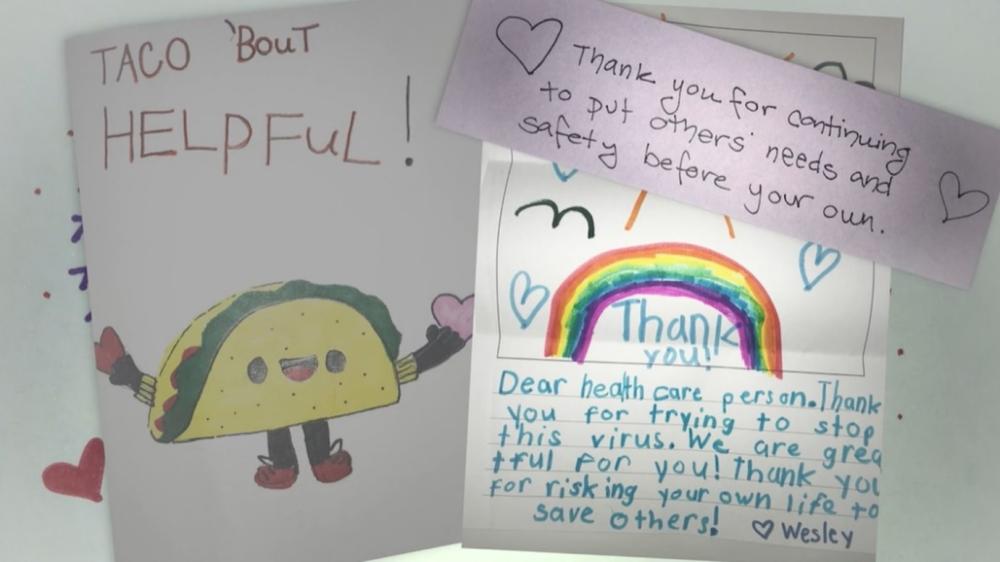 TACO 'BouT
HELPFuL!
Thank you for continuing
to put others' needs and
safety before your own.
Thank
you!!
Dear health care person. Thank
you for trying to stop
this virus. We are grea
tful for you! Thank you
for risking your own life to
save others! ♡ Wesley